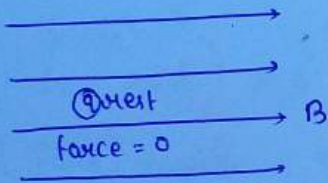 q rest
B
force = 0